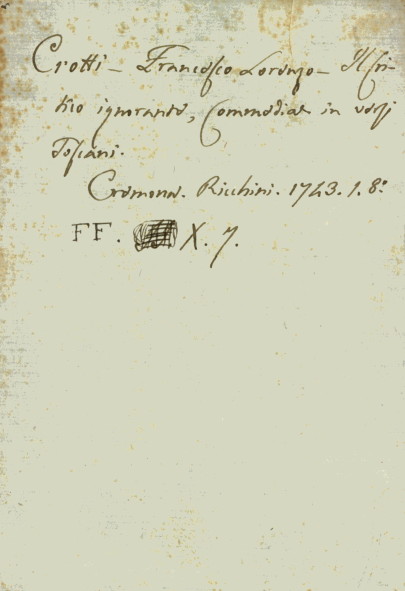 Crotti - Francesco Lorenzo - Il Cri-
tico ignorante, Commediae in versi
Toscani.
Cremona. Ricchini. 1743. 1. 8º
FF. X. 7.